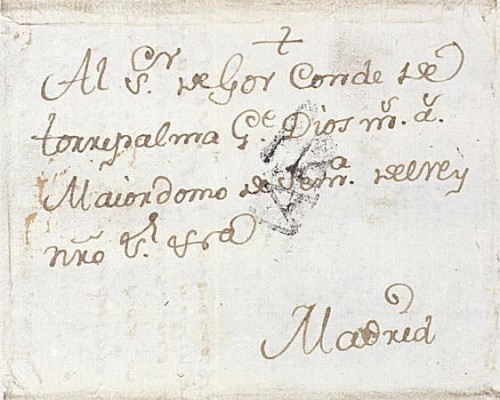 +
Al Sr. de Gor Conde de
torrepalma Ge. Dios ms. as.
Maiordomo de Sema. del Rey
nro Sr.
Madrid